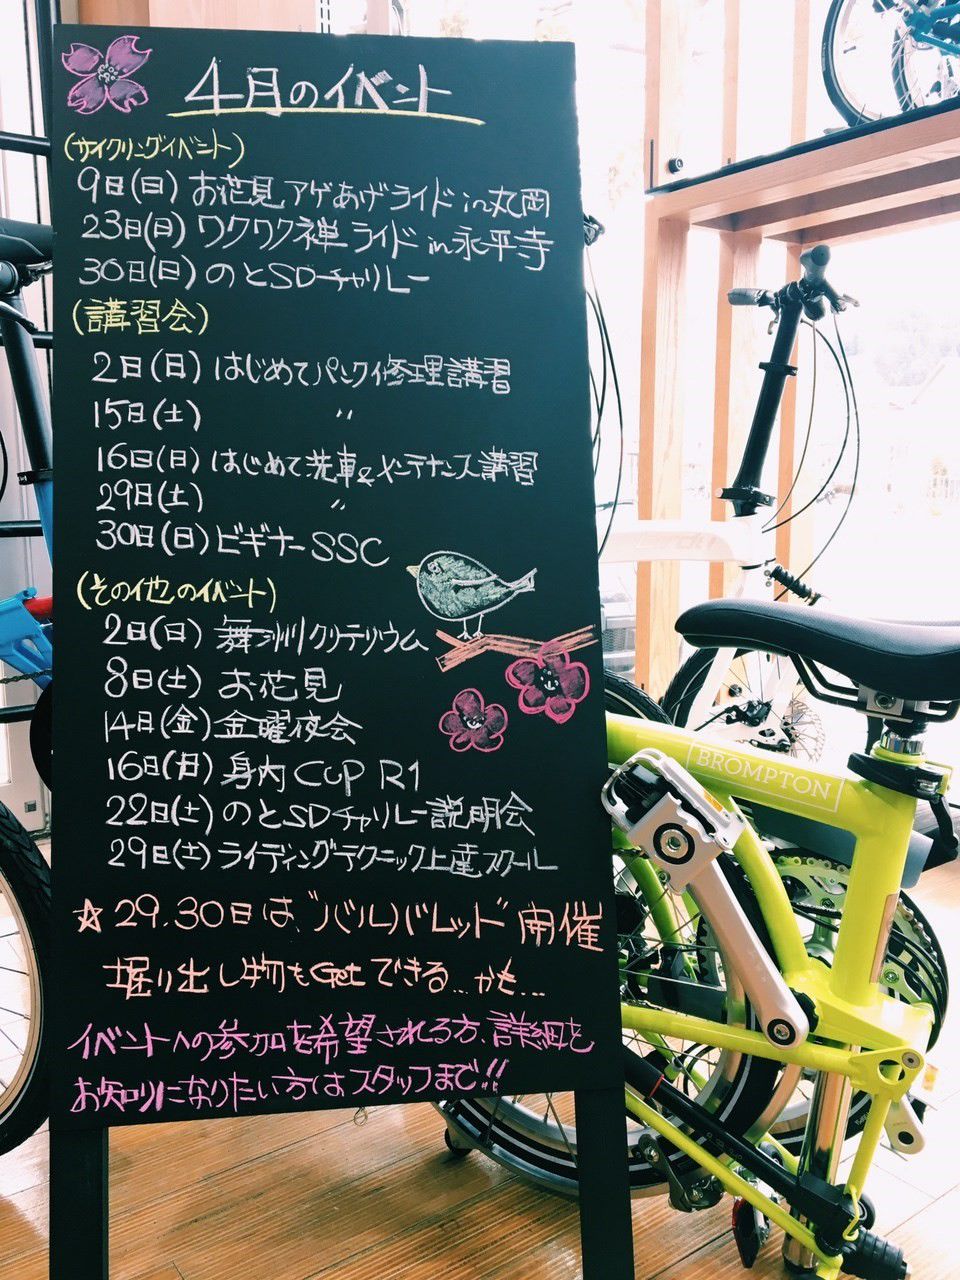 4月のイベント
(サイクリングイベント)
9日(日) お花見アゲあげライド in 丸岡
23日(日) ワクワク禅ライド in 永平寺
30日(日) のとSDチャリレー
(講習会)
2日(日) はじめてパンク修理講習
15日(土) 〃
16日(日) はじめて洗車&メンテナンス講習
29日(土) 〃
30日(日) ビギナーSSC
(その他のイベント)
2日(日) 舞洲クリテリウム
8日(土) お花見
14日(金) 金曜夜会
16日(日) 身内CUP R1
22日(土) のとSDチャリレー説明会
29日(土) ライディングテクニック上達スクール
☆29.30日は、"バルバレッド"開催
掘り出し物もGetできる...かも...
イベントへの参加を希望される方、詳細を
お知りになりたい方はスタッフまで!!
BROMPTON